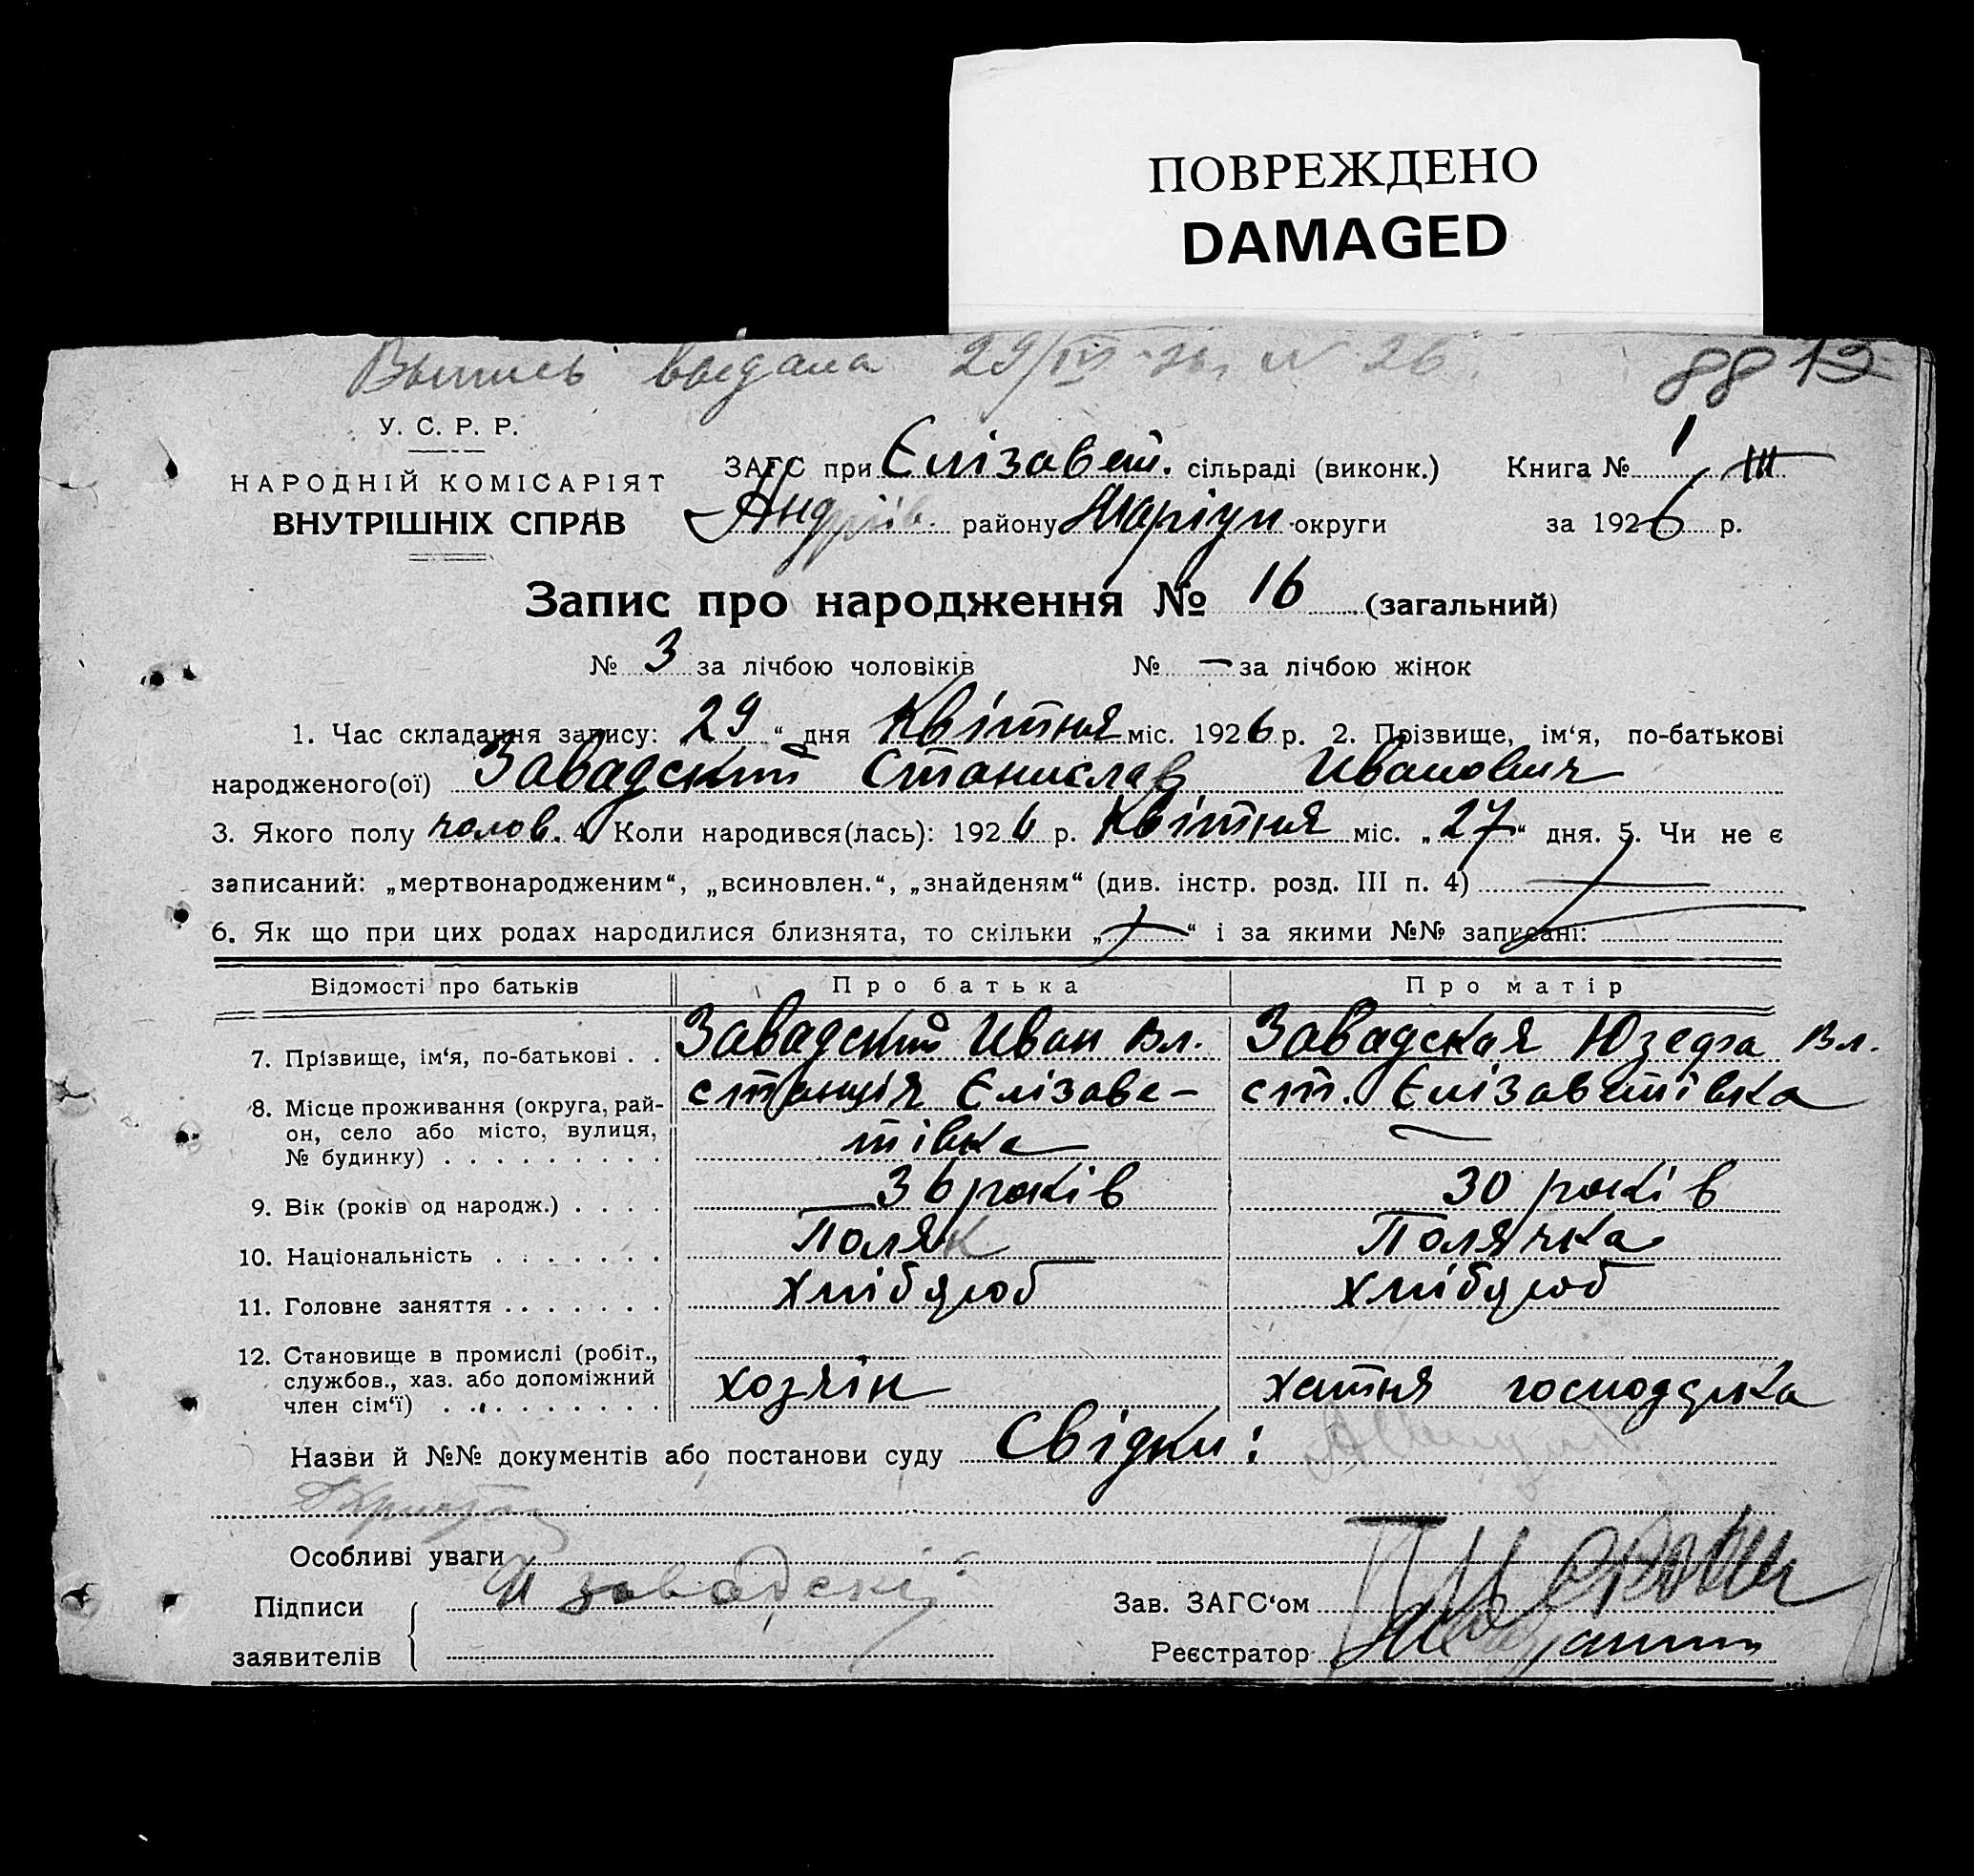 ПОВРЕЖДЕНО
DAMAGED
Выпись выдана 29/IV-26. N 26.
88 12
У. С. Р. Р.
НАРОДНІЙ КОМІСАРІЯТ
ВНУТРІШНІХ СПРАВ
ЗАГС при Єлізавет. сільраді (виконк.) Книга № 1 III
Андріїв. району Маріуп. округи за 1926 р.
Запис про народження № 16 (загальний)
№ 3 за лічбою чоловіків № — за лічбою жінок
1. Час складання запису: „29“ дня Квітня міс. 1926 р. 2. Прізвище, ім‘я, по-батькові
народженого(ої) Завадский Станислав Иванович
3. Якого полу чолов. 4. Коли народився(лась): 1926 р. Квітня міс. „27“ дня. 5. Чи не є
записаний: „мертвонародженим“, „всиновлен.“, „знайденям“ (див. інстр. розд. III п. 4) —
6. Як що при цих родах народилися близнята, то скільки „—“ і за якими №№ записані:
Відомості про батьків Про батька Про матір
7. Прізвище, ім‘я, по-батькові . . Завадский Иван Вл. Завадская Юзефа Вл.
8. Місце проживання (округа, рай-
он, село або місто, вулиця,
№ будинку) . . . . . . . . . станція Єлізаве-
тівка ст. Єлізаветівка
9. Вік (років од народж.) . . . . 36 років 30 років
10. Національність . . . . . . . Поляк Полячка
11. Головне заняття . . . . . . . хлібороб хлібороб
12. Становище в промислі (робіт.,
службов., хаз. або допоміжний
член сім‘ї) . . . . . . . . . хозяїн хатня господарка
Назви й №№ документів або постанови суду Свідки:
Особливі уваги
Підписи
заявителів
И Завадскій
Зав. ЗАГС‘ом
Реєстратор